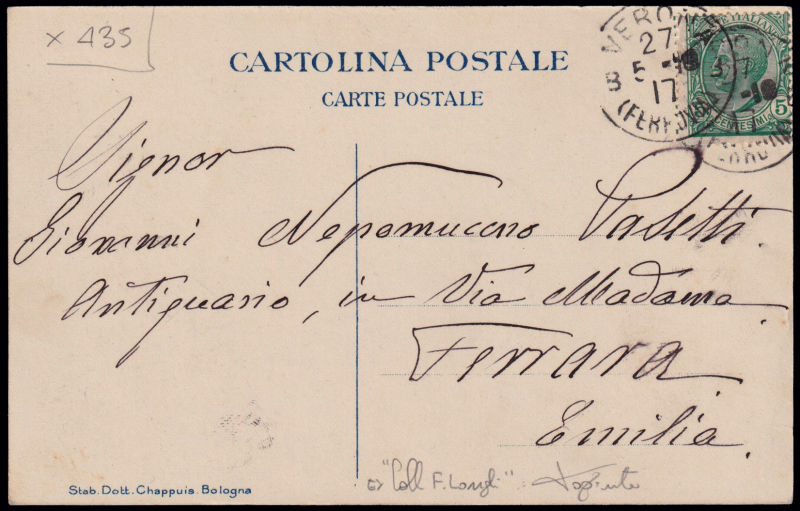 x 435
CARTOLINA POSTALE
CARTE POSTALE
VERONA
27
5 - 10
17
(FERROVIA)
5
Signor
Giovanni Nepomuceno Pasetti.
Antiquario, in Via Madama
Ferrara
Emilia.
Stab. Dott. Chappuis. Bologna
"Coll F.